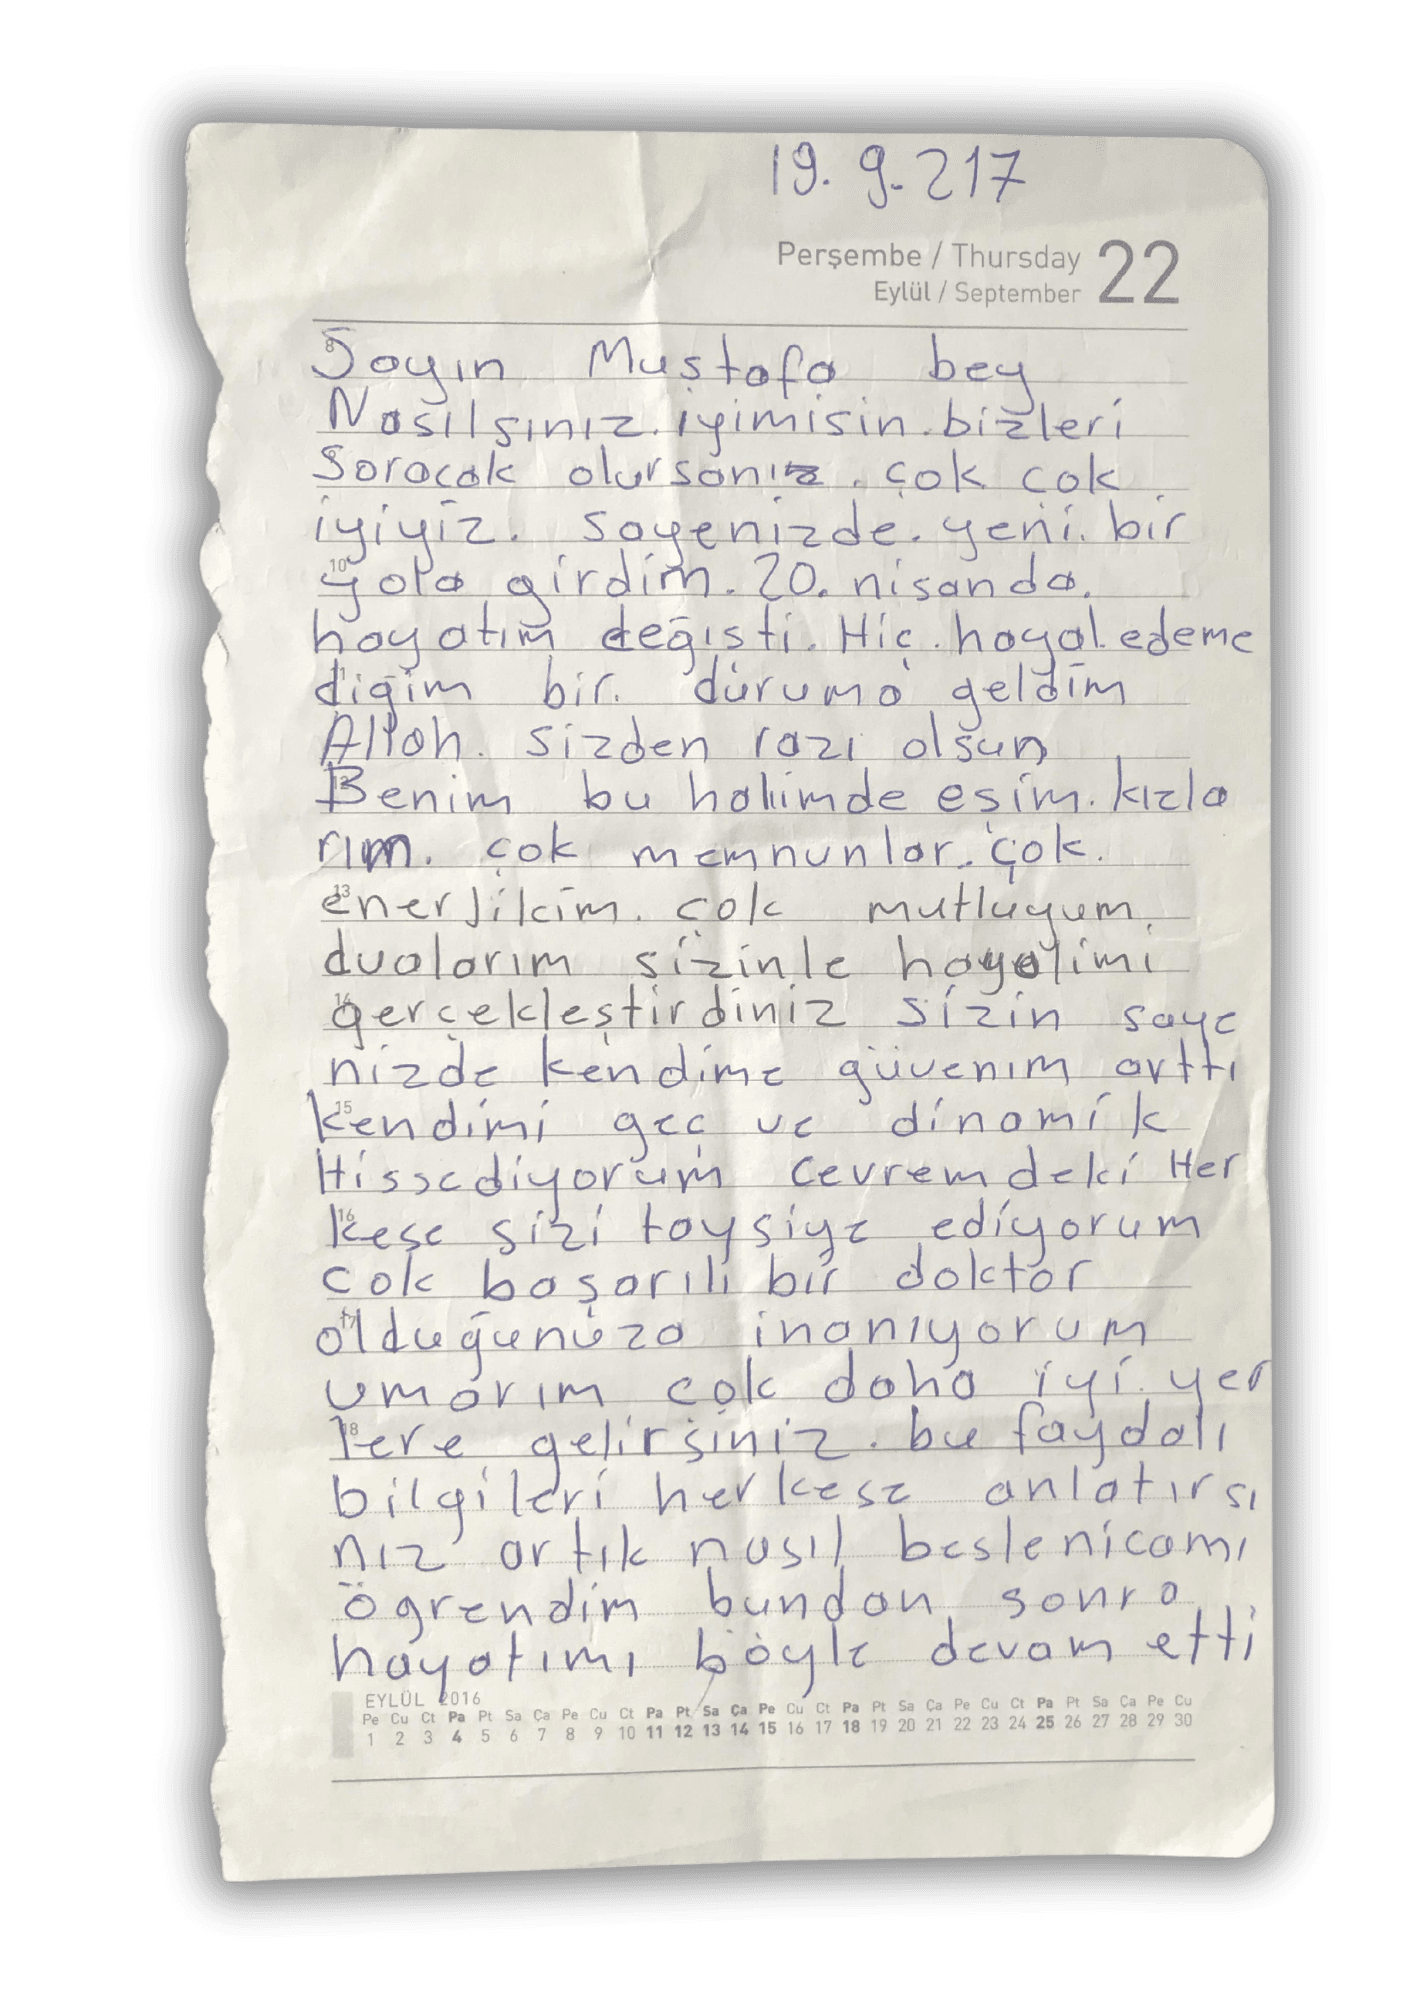 19.9.217
Perşembe / Thursday 22
Eylül / September
8
Sayın Mustafa bey
Nasılsınız. iyimisin. bizleri
Soracak olursanız. çok çok
iyiyiz. sayenizde. yeni. bir
10
yola girdim. 20. nisanda.
hayatım değişti. Hiç. hayal. edeme
11
diğim bir. duruma geldim
Allah. sizden razı olsun
12
Benim bu halimde eşim. kızla
rım. çok memnunlar. çok.
13
enerjikim. çok mutluyum.
dualarım sizinle hayalimi
14
gerçekleştirdiniz sizin saye
nizde kendime güvenim arttı
15
kendimi geç ve dinamik
Hissediyorum çevremdeki Her
16
kese sizi taysiye ediyorum
çok başarılı bir doktor
17
olduğunuza inanıyorum
umarım çok daha iyi yer
18
lere gelirsiniz. bu faydalı
bilgileri herkese anlatırsı
nız artık nasıl beslenicamı
öğrendim bundan sonra
hayatımı böyle devam etti
EYLÜL 2016
Pe Cu Ct Pa Pt Sa Ça Pe Cu Ct Pa Pt Sa Ça Pe Cu Ct Pa Pt Sa Ça Pe Cu Ct Pa Pt Sa Ça Pe Cu
1 2 3 4 5 6 7 8 9 10 11 12 13 14 15 16 17 18 19 20 21 22 23 24 25 26 27 28 29 30